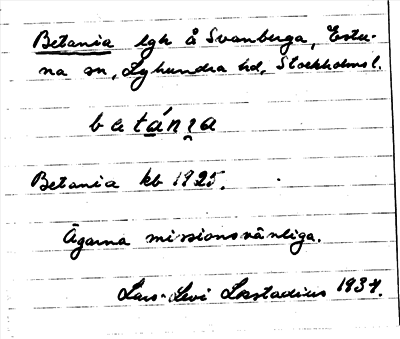 Betania lgh å Svanberga, Estu-
na sn, Lyhundra hd, Stockholms l.
betánɪa
Betania kb 1925.
Ägarna missionsvänliga.
Lars-Levi Læstadius 1934.